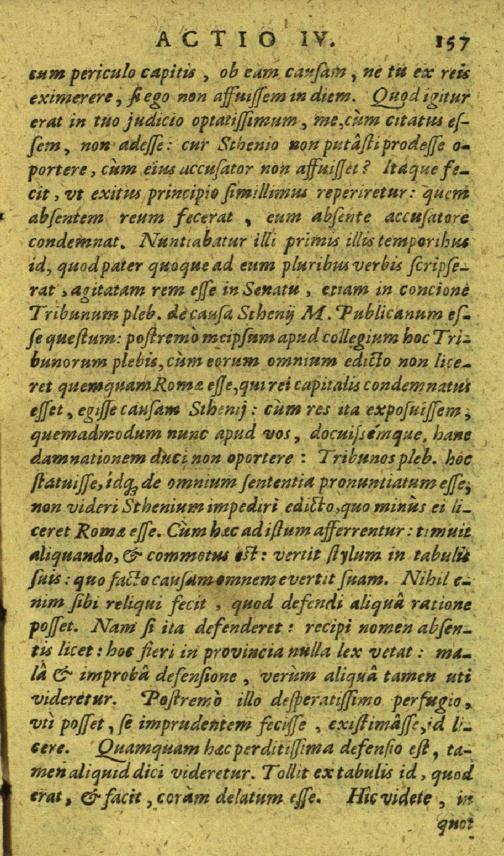 ACTIO IV. 157
cum periculo capitis, ob eam causam, ne tu ex reis
eximerere, si ego non affuissem in diem. Quod igitur
erat in tuo judicio optatissimum, me, cùm citatus es-
sem, non adesse: cur Sthenio non putâsti prodesse o-
portere, cùm eius accusator non affuisset? Itaque fe-
cit, vt exitus principio simillimus reperiretur: quem
absentem reum fecerat, eum absente accusatore
condemnat. Nuntiabatur illi primis illis temporibus
id, quod pater quoque ad eum pluribus verbis scripse-
rat, agitatam rem esse in Senatu, etiam in concione
Tribunum pleb. de causa Sthenij M. Publicanum es-
se questum: postremò meipsum apud collegium hoc Tri-
bunorum plebis, cùm eorum omnium edicto non lice-
ret quemquam Romæ esse, qui rei capitalis condemnatus
esset, egisse causam Sthenij: cùm res ita exposuissem,
quemadmodum nunc apud vos, docuissémque, hanc
damnationem duci non oportere: Tribunos pleb. hoc
statuisse, idq́, de omnium sententia pronuntiatum esse,
non videri Sthenium impediri edicto, quo minùs ei li-
ceret Romæ esse. Cùm hæc ad istum afferrentur: timuit
aliquando, & commotus est: vertit stylum in tabulis
suis: quo facto causam omnem evertit suam. Nihil e-
nim sibi reliqui fecit, quod defendi aliquâ ratione
posset. Nam si ita defenderet: recipi nomen absen-
tis licet: hoc fieri in provincia nulla lex vetat: ma-
lâ & improbâ defensione, verùm aliquâ tamen uti
videretur. Postremò illo desperatissimo perfugio,
vti posset, se imprudentem fecisse, existimâsse, id li-
cere. Quamquam hæc perditissima defensio est, ta-
men aliquid dici videretur. Tollit ex tabulis id, quod
erat, & facit, coràm delatum esse. Hic videte, in
quot